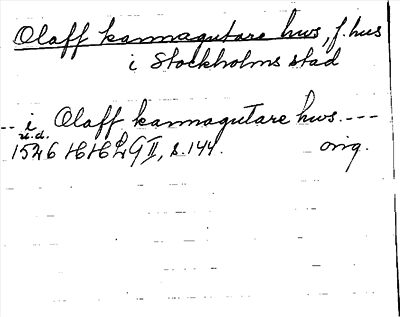 Olaff kannagutare hws, f. hus
i Stockholms stad
-- i Olaff kannagutare hws. ---
u.d.
1526 HHLG II, s. 144. orig.